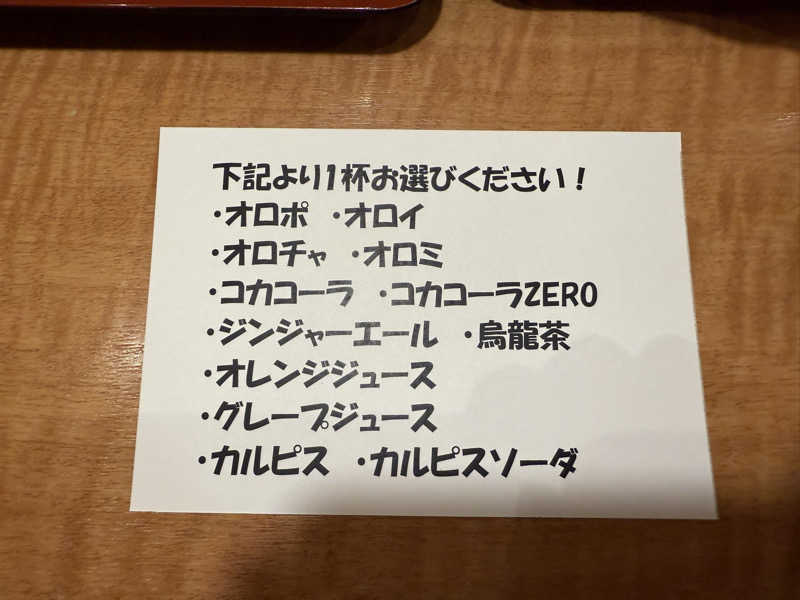 下記より1杯お選びください！
・オロポ ・オロイ
・オロチャ ・オロミ
・コカコーラ ・コカコーラZERO
・ジンジャーエール ・烏龍茶
・オレンジジュース
・グレープジュース
・カルピス ・カルピスソーダ